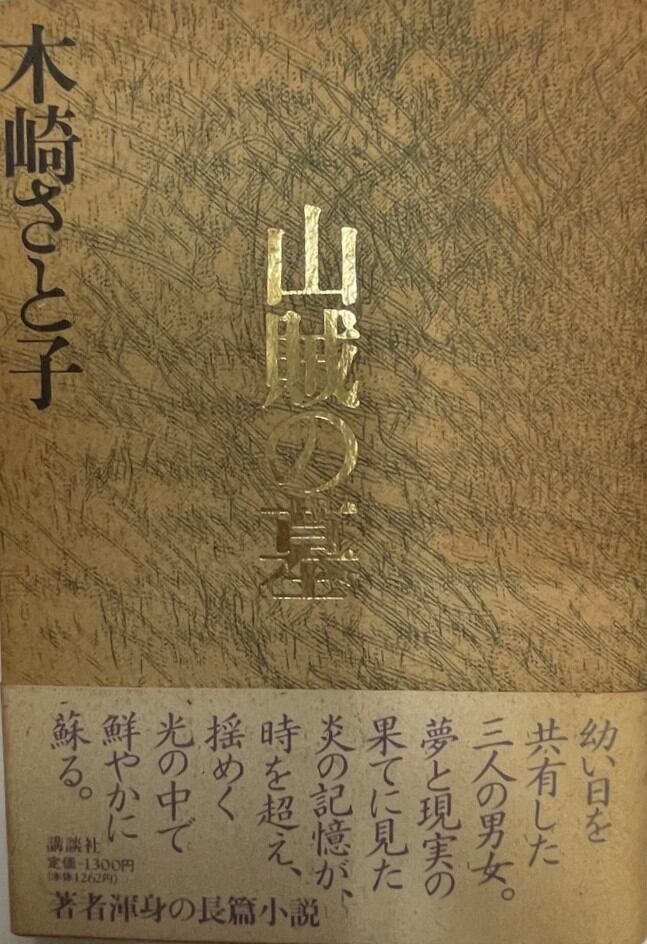 木崎さと子
山賊の墓
幼い日を
共有した
三人の男女。
夢と現実の
果てに見た
炎の記憶が、
時を超え、
揺めく
光の中で
鮮やかに
蘇る。
講談社
定価-1300円
(本体1262円)
著者渾身の長篇小説